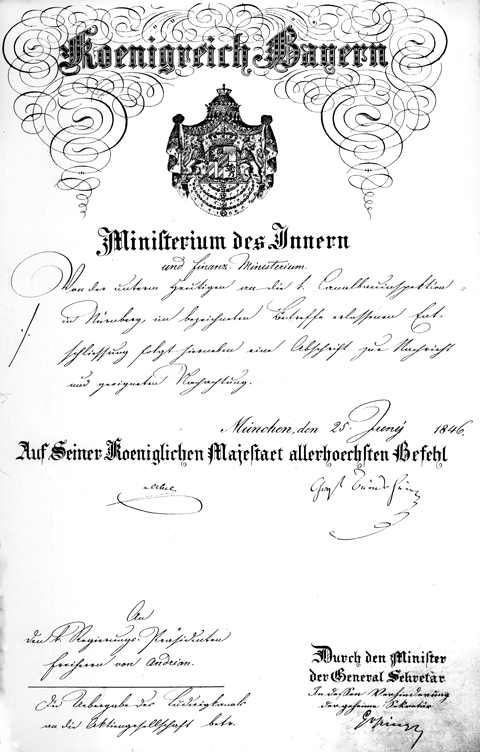 Koenigreich Bayern
Ministerium des Innern
und Finanz-Ministerium.
Von der unterm Heutigen an die k. Canalbauinspektion
in Nürnberg, im bezeichneten Betreffe erlassenen Ent-
schliessung folgt hierneben eine Abschrift zur Nachricht
und geeigneten Nachachtung.
München, den 25. Juny 1846.
Auf Seiner Koeniglichen Majestaet allerhoechsten Befehl
An
den k. Regierungs-Präsidenten
Freiherrn von Andrian.
Durch den Minister
der General Sekretär
In dessen Verhinderung
der geheime Sekretär
Die Uebergabe des Ludwigkanals
an die Aktiengesellschaft betr.